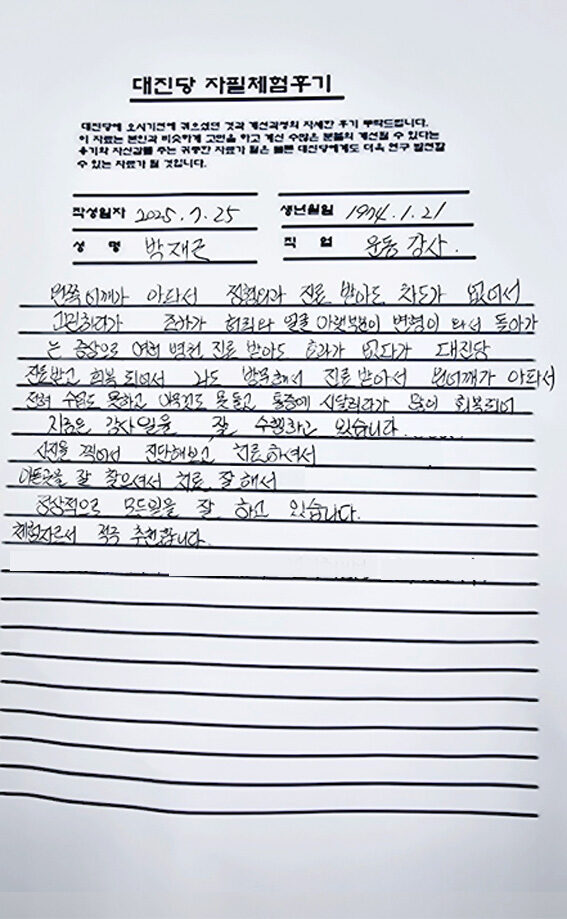 대진당 자필체험후기
대진당에 오시기전에 겪으셨던 것과 개선과정의 자세한 후기 부탁드립니다.
이 자료는 본인과 비슷하게 고민을 하고 계신 수많은 분들의 개선될 수 있다는
용기와 자신감을 주는 귀중한 자료가 될은 물론 대진당에게도 더욱 연구 발전할
수 있는 자료가 될 것입니다.
작성일자 2025.7.25 생년월일 1974.1.21
성 명 박재근 직 업 운동 강사.
왼쪽 어깨가 아파서 정형외과 진료 받아도 차도가 없어서
고민하다가 허리와 얼굴 변형이 와서 돌아가
는 증상으로 여러 병원 진료 받아도 효과가 없다가 대진당
진료받고 회복 되어서 나도 방문해서 진료 받아서 왼어깨가 아파서
전혀 수업도 못하고 아무것도 못들고 통증에 시달리다가 많이 회복되어
지금은 강사일을 잘 수행하고 있습니다
사진을 찍어서 진단해보고 치료하셔서
아픈곳을 잘 찾으셔서 치료 잘해서
정상적으로 모든일을 잘 하고 있습니다.
체험자로서 적극 추천합니다.